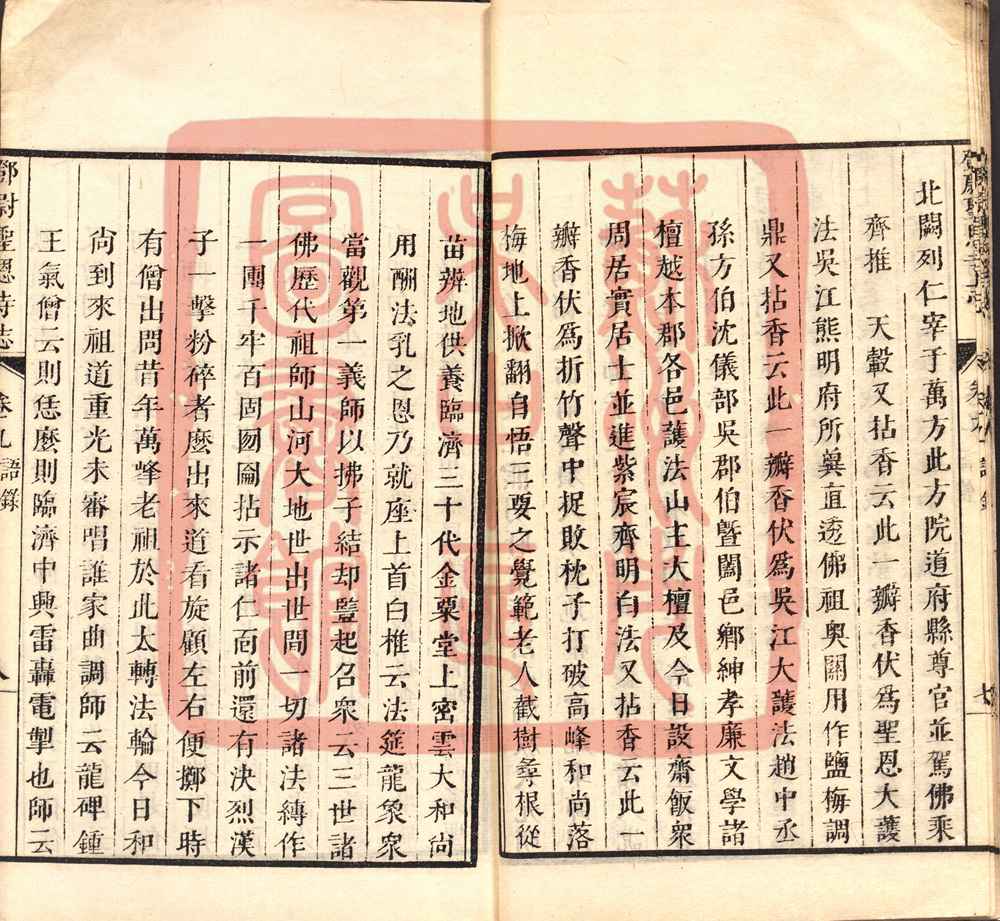 北闕列仁宰于萬方此方院道府縣尊官並駕佛乘
齊推　天轂又拈香云此一瓣香伏為聖恩大護
法吳江熊明府所冀直透佛祖奧關用作鹽梅調
鼎又拈香云此一瓣香伏爲吳江大護法趙中丞
孫方伯沈儀部吳郡伯暨闔邑鄉紳孝廉文學諸
檀越本郡各邑護法山主大檀及今日設齋飯衆
周居實居士並進紫宸齊明白法又拈香云此一
瓣香伏爲折竹聲中捉敗枕子打破高峰和尚落
梅地上掀翻自悟三要之覺範老人截樹尋根從
苗辨地供養臨濟三十代金粟堂上密雲大和尚
用酬法乳之恩乃就座上首白椎云法筵龍象衆
當觀第一義師以拂子結却豎起召衆云三世諸
佛歷代祖師山河大地世出世間一切諸法縳作
一團千牢百固囫圇拈示諸仁面前還有決烈漢
子一擊粉碎者麽出來道看旋顧左右便擲下時
有僧出問昔年萬峰老祖於此太轉法輪今日和
尙到來祖道重光未審唱誰家曲調師云龍碑鍾
王氣僧云則恁麽則臨濟中興雷轟電掣也師云
鄧尉聖恩寺志
卷九
語錄